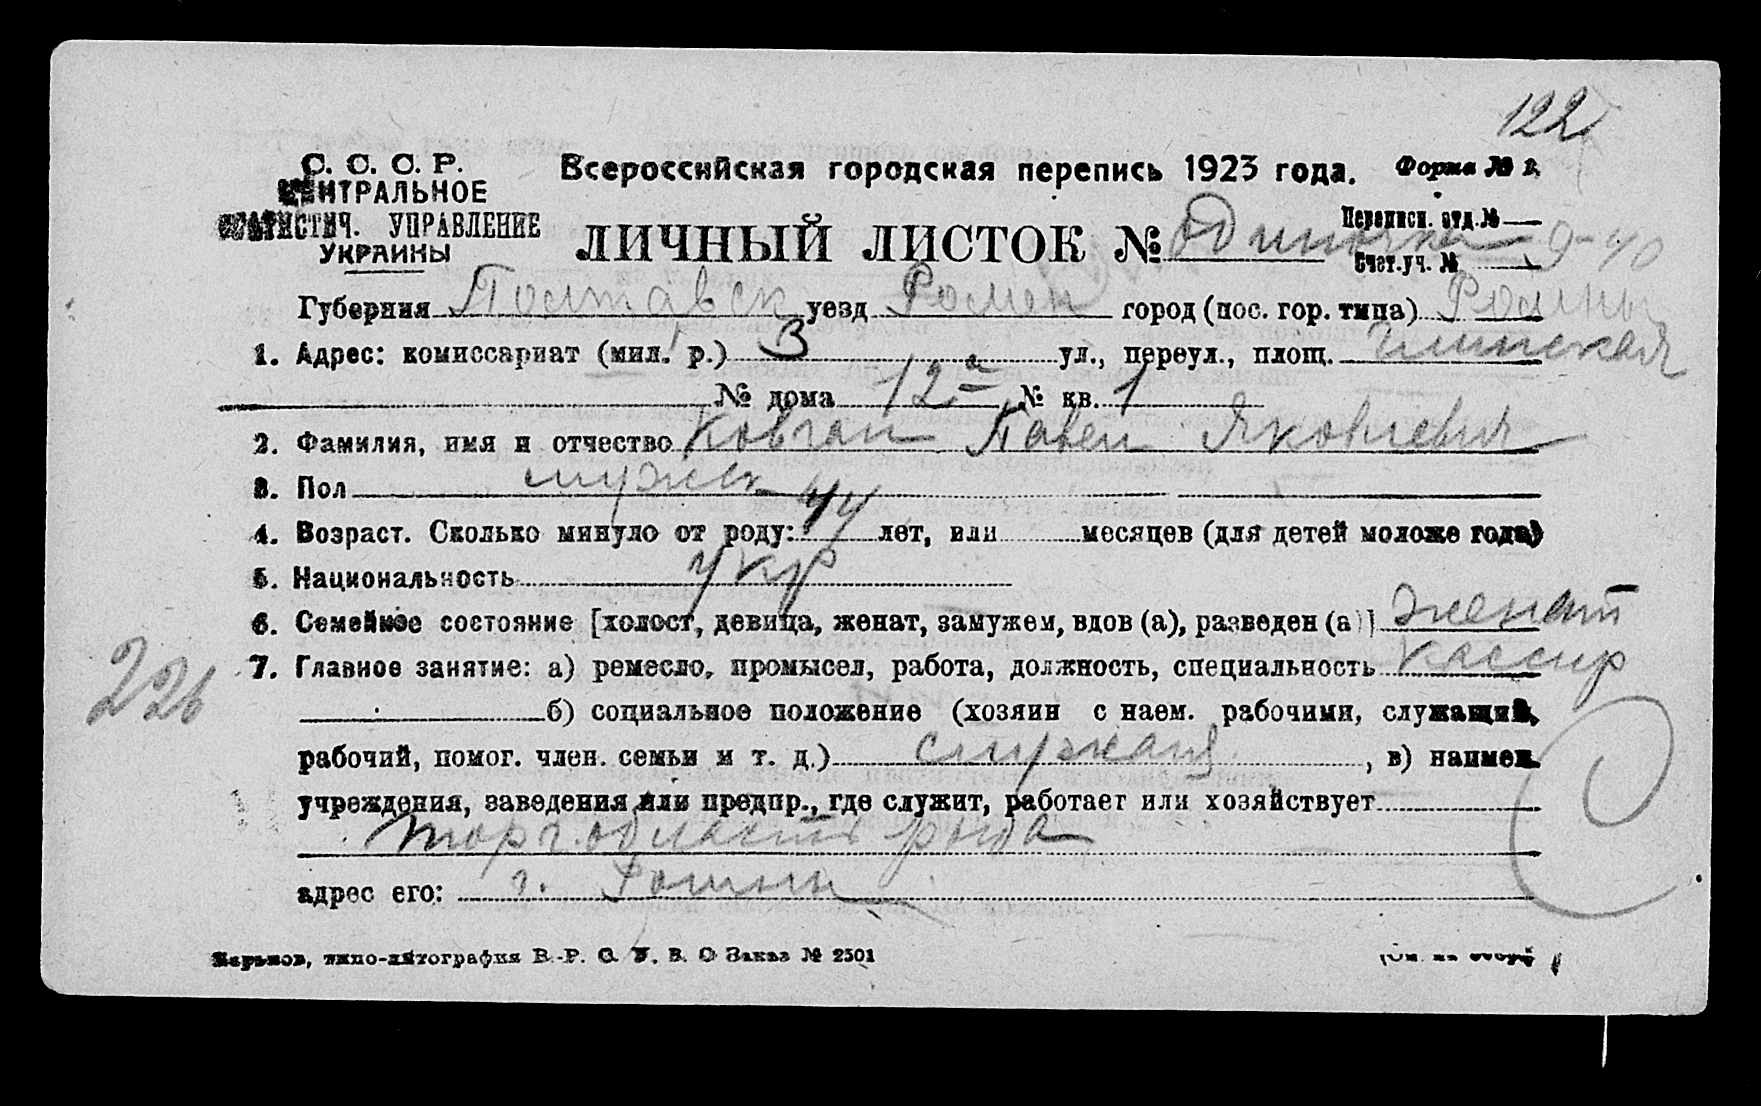 122
С. С. С. Р.
ЦЕНТРАЛЬНОЕ
СТАТИСТИЧ. УПРАВЛЕНИЕ
УКРАИНЫ
Всероссийская городская перепись 1923 года. Форма № 2.
ЛИЧНЫЙ ЛИСТОК № одиночка
Переписн. отд. №
Счет. уч. № 9-40
Губерния Полтавск уезд Ромен город (пос. гор. типа) Ромны
1. Адрес: комиссариат (мил. р.) 3 ул., переул., площ. Глинская
№ дома 12а № кв. 1
2. Фамилия, имя и отчество Ковган Павел Яковлевич
3. Пол мужск
4. Возраст. Сколько минуло от роду: 44 лет, или месяцев (для детей моложе года)
5. Национальность укр
6. Семейное состояние [холост, девица, женат, замужем, вдов (а), разведен (а)] женат
226
7. Главное занятие: а) ремесло, промысел, работа, должность, специальность кассир
б) социальное положение (хозяин с наем. рабочими, служащий,
рабочий, помог. член. семьи и т. д.) служащ , в) наимен.
учреждения, заведения или предпр., где служит, работает или хозяйствует
адрес его: г. Ромны
Харьков, типо-литография В.-Р. С. У. В. О Заказ № 2501